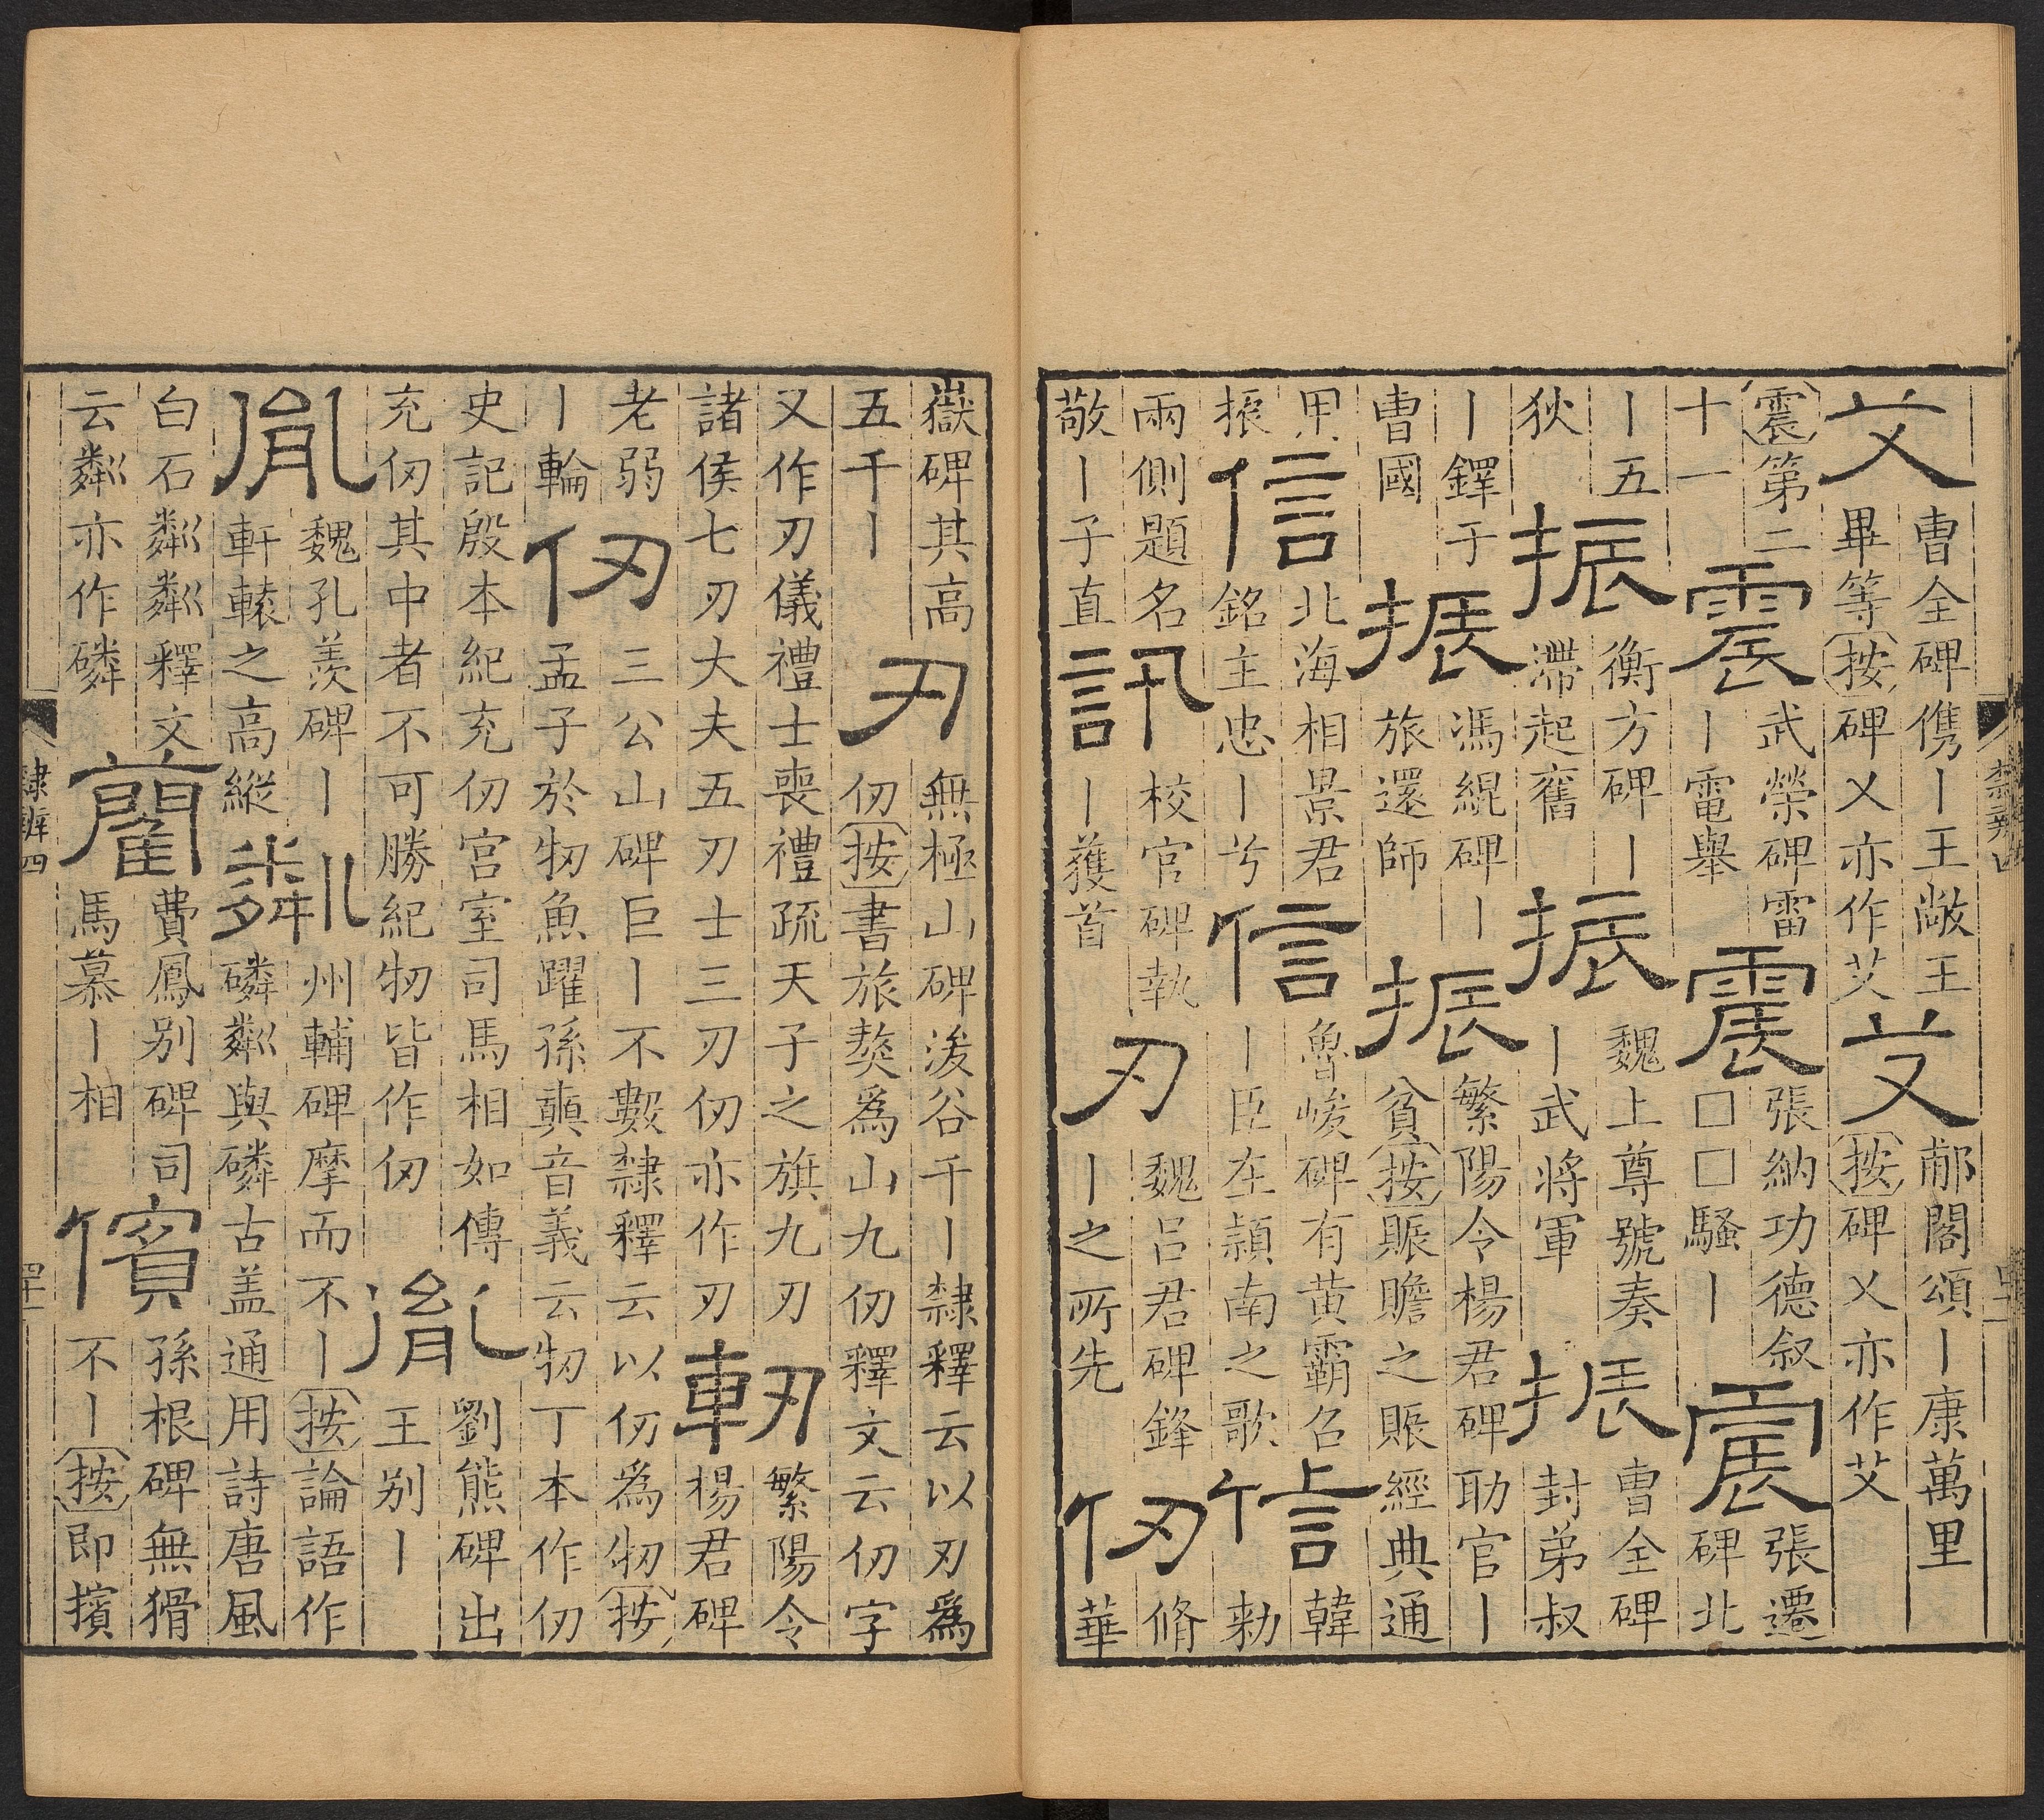 艾
曹全碑儁〡王敞王
畢等按碑乂亦作艾
艾
郙閣頌〡康萬里
按碑乂亦作艾
震第二
十一
震
武榮碑雷
〡電舉
震
張納功德叙
□□騷〡
震
張遷
碑北
〡五
狄
振
衡方碑〡
滯起舊
振
魏上尊號奏
〡武將軍
振
曹全碑
封弟叔
〡鐸于
曹國
振
馮緄碑〡
旅還師
振
繁陽令楊君碑助官〡
貧按賑贍之賑經典通
用
振
信
北海相景君
銘主忠〡兮
信
魯峻碑有黄霸召
〡臣在潁南之歌
信
韓
勑
兩側題名
敬〡子直
訊
校官碑執
〡獲首
刃
魏呂君碑鋒
〡之所先
仞
脩
華
嶽碑其高
五千〡
刃
無極山碑浚谷千〡隸釋云以刃爲
仞按書旅獒爲山九仞釋文云仞字
又作刃儀禮士喪禮疏天子之旗九刃
諸侯七刃大夫五刃士三刃仞亦作刃
軔
繁陽令
楊君碑
老弱
〡輪
仞
三公山碑巨〡不數隸釋云以仞爲牣按
孟子於牣魚躍孫奭音義云牣丁本作仞
史記殷本紀充仞宮室司馬相如傳
充仞其中者不可勝紀牣皆作仞
胤
劉熊碑出
王别〡
胤
魏孔羨碑〡
軒轅之高縱
粼
州輔碑摩而不〡按論語作
磷粼與磷古盖通用詩唐風
白石粼粼釋文
云粼亦作磷
藺
費鳳别碑司
馬慕〡相
儐
孫根碑無猾
不〡按即擯
隸辨四
四十一